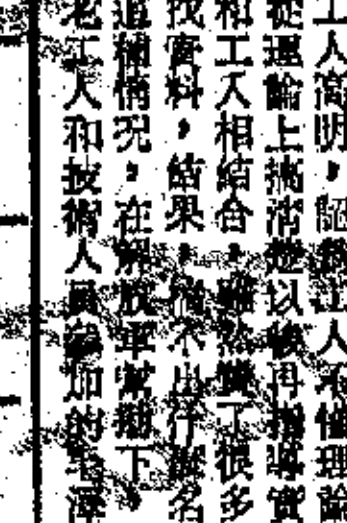 工人高明，認為工人不懂理論
從理論上搞清楚以後再搞實
和工人相結合，雖然攤了很多
找資料，結果，搞不出什麼名
這種情況，在解放軍幫助下
老工人和技術人員參加的毛澤